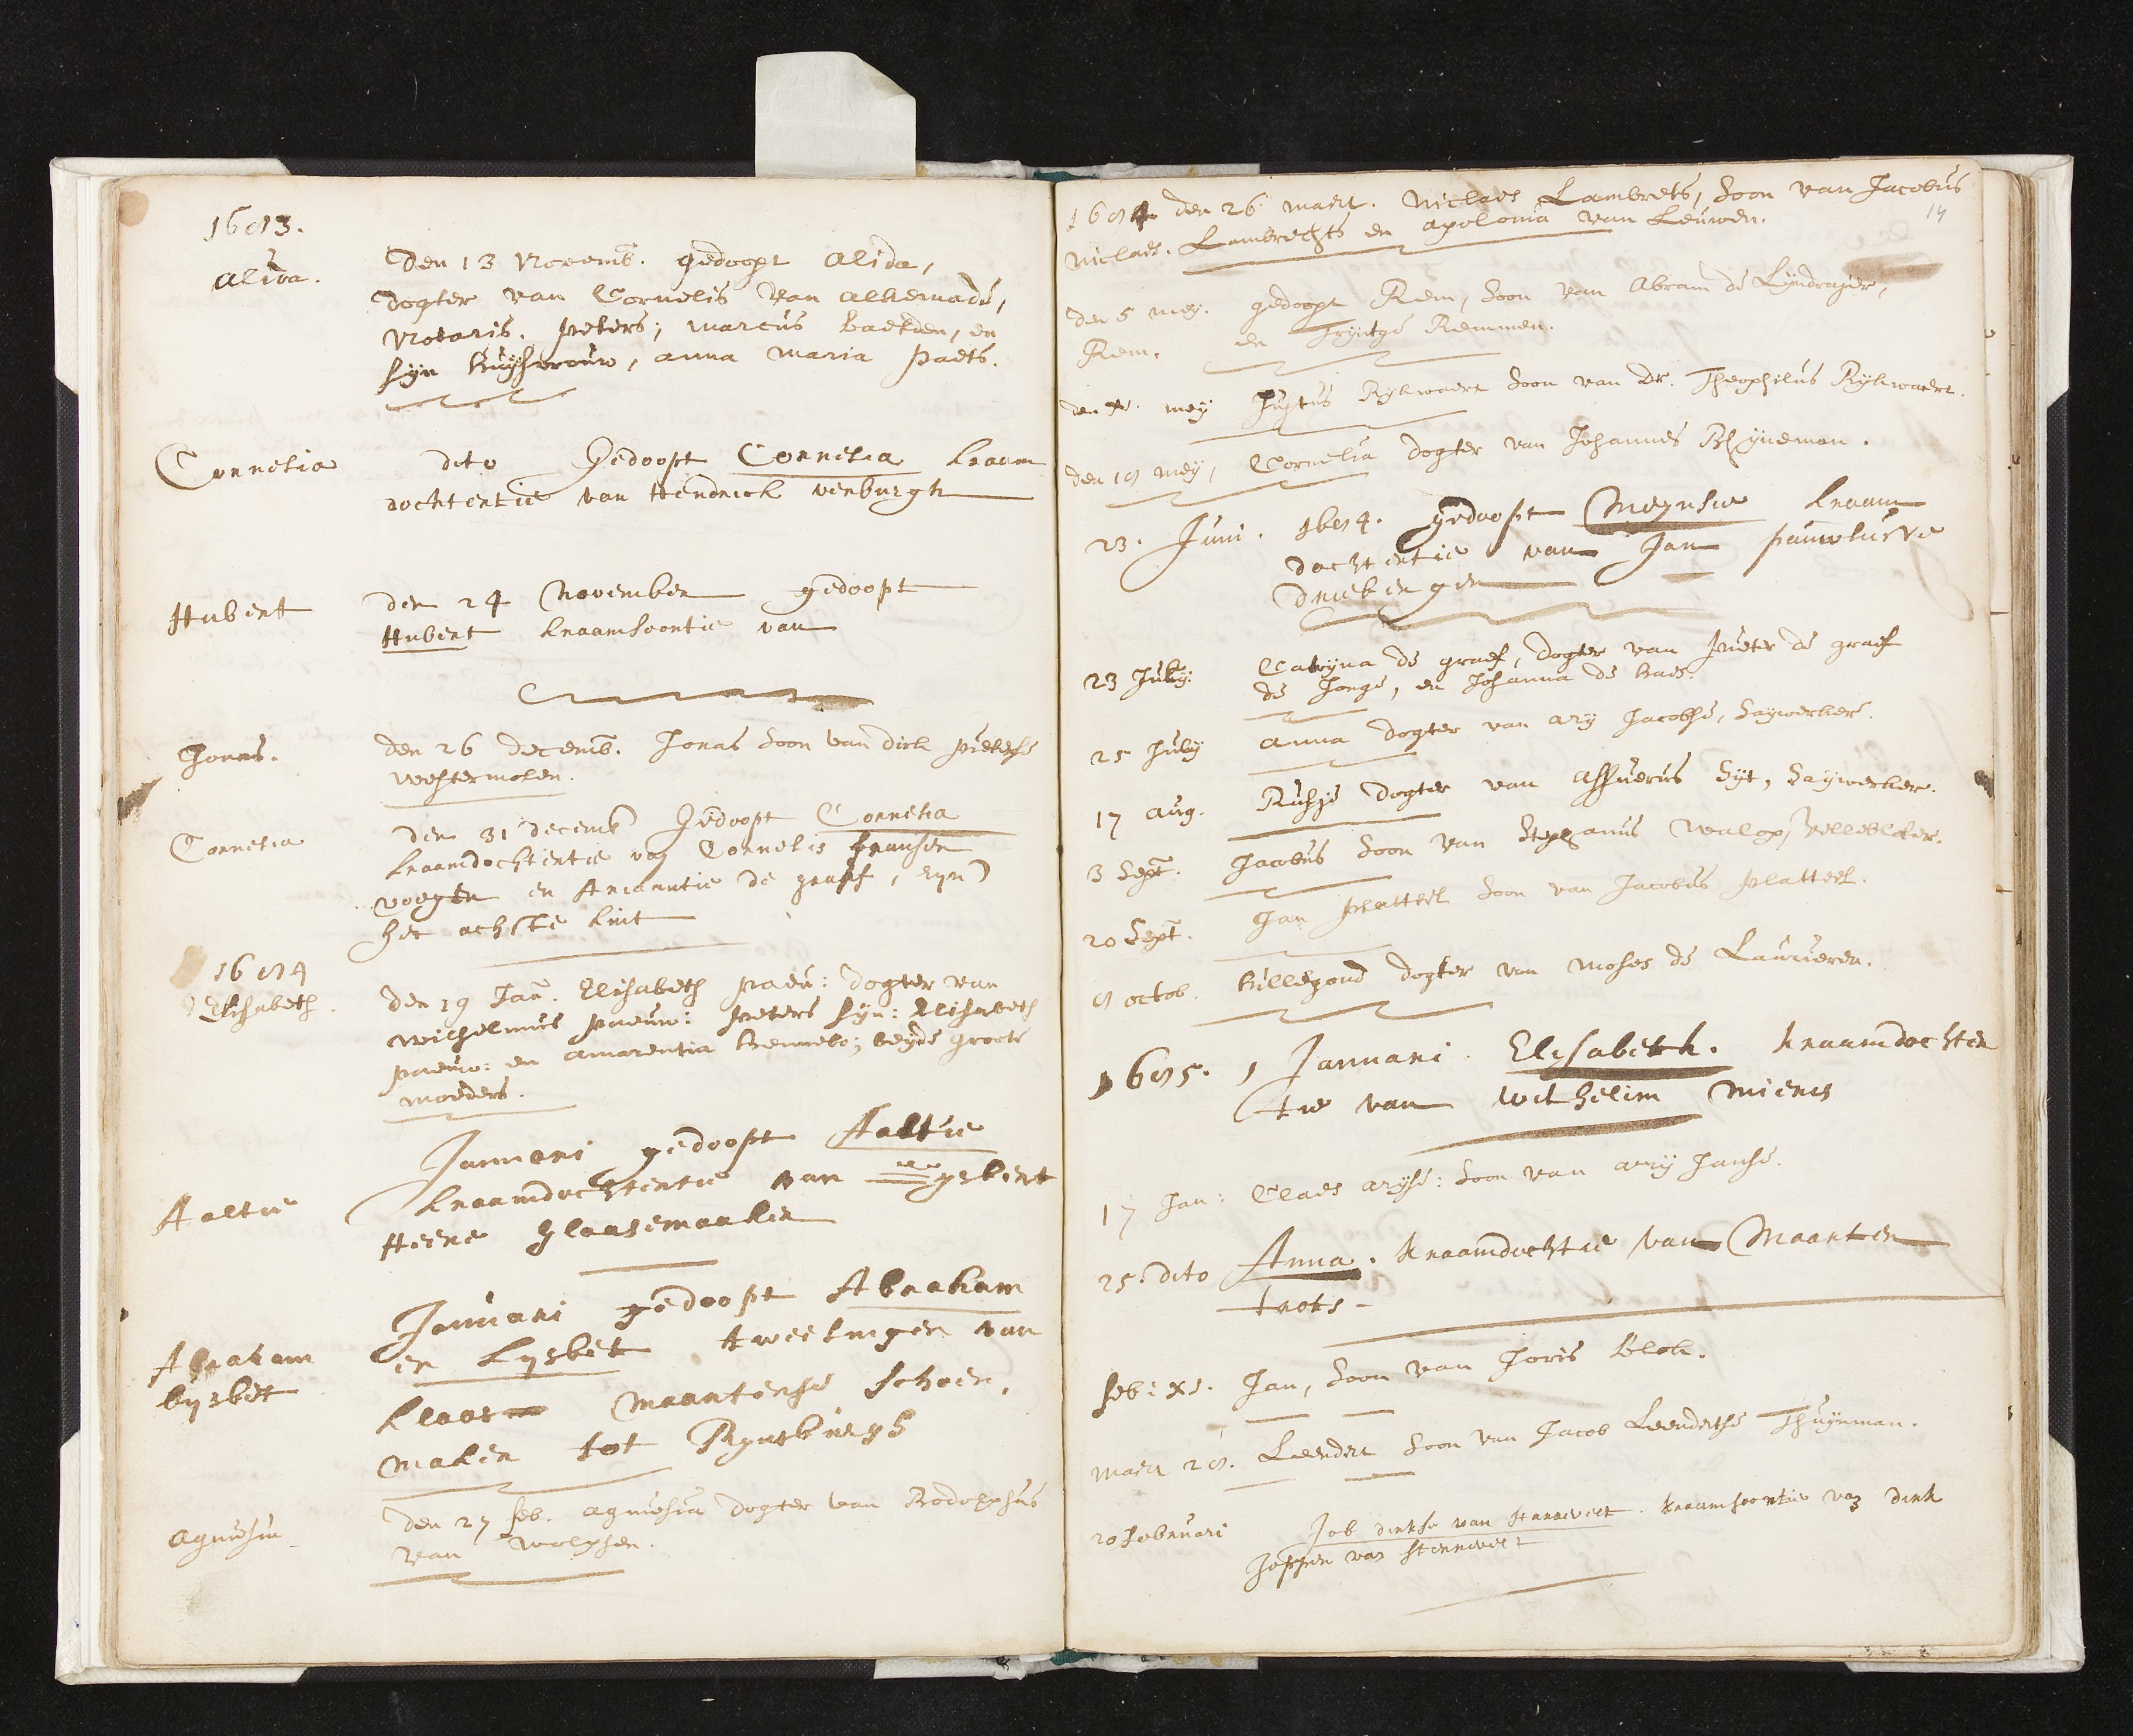 1683.
Alida.
Den 13 Novemb. gedoopt Alida,
dogter van Cornelis van Alkemade,
Notaris. peters; Marcus baelden, en
syn huysvrouw, anna Maria paets.
Cornelia
dito Gedoopt Cornelia kraam
dochtertie van Hendrick verburgh
Hubert
den 24 November gedoopt
Hubert kraamsoontie van
Jonas.
den 26 Decemb. Jonas soon van dirk pieterse
westermolen.
Cornelia
den 31 decemb Gedoopt Cornelia
kraamdochtertie van Cornelis fransen
voogten en Ariaantie de graaf, zijn
het achste kint
1684
Elisabeth.
den 19 Jan. Elisabeth paeu: dogter van
Wilhelmus paeuw: peters syn: Elisabeth
paeuw: en amarentia Bennebo; beyde groote
moeders.
Aaltie
Januari gedoopt Aaltie
kraamdochtertie van gysbert
Heere glaasemaaker
Abraham
Lysbet
Januari gedoopt Abraham
en Lysbet tweelingen van
klaas maartense schoen,
maker tot Rynsburgh
Agniesia
den 27 feb. agniesia dogter van Rodolphus
van wolphen.
14
1684 den 26 maert. Niclaes Lambrets, soon van Jacobus
Niclaes. Lambrechts en apolonia van Leuwen.
den 5 mey. gedoopt Rem, soon van Abram de Lyndrajer,
Rem. en Tryntge Remmen.
den mey Justus Rykwaert soon van Dr. Theophilus Rykwaert.
den 18 mey, Cornelia dogter van Johannes Blyneman.
23. Juni. 1684. gedoopt Meynsie kraam
dochtertie van Jan pauwlusse
Driebergen
23 July.
Catryna de graef, dogter van pieter de graef
de Jonge, en Johanna de baes.
25 July
anna dogter van ary Jacobse, saywerker.
17 aug.
Rusje dogter van Assuerus Syt, saywerker.
3 Sept.
Jacobus soon van Stephanus Walop, vellebloter.
20 Sept.
Jan platteel soon van Jacobus platteel.
8 octob.
hillegond dogter van Moses de Lauweren.
1685. 1 Januari. Elisabeth. kraamdochter
tie van wilhelim Mieris
17 Jan: Claes aryse: soon van arij Janse.
25. dito Anna. kraamdochtie van Maarten
trots
feb: XI. Jan, soon van Joris Blok.
Maert 28. Leendert soon van Jacob Leendertse Thuynman.
20 februari
Job dirkse van Starrevelt. kraamsoontie van dirk
Joppen van Sterrevelt